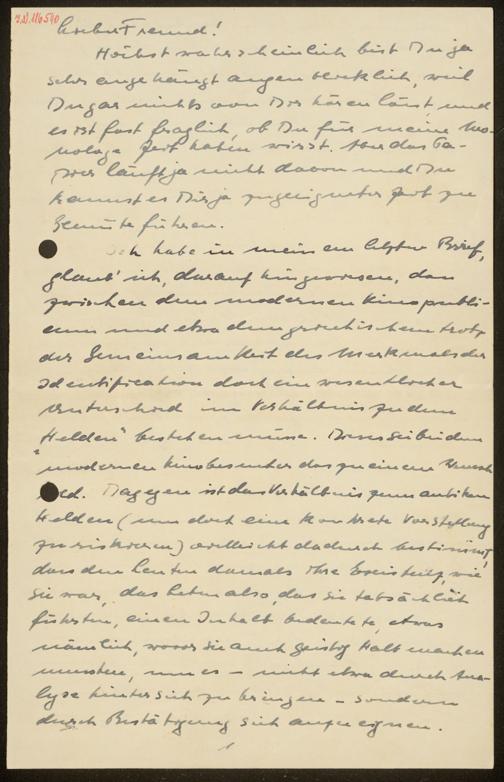 J.N. 116590
Lieber Freund!
Höchst wahrscheinlich bist Du ja
sehr angehängt augenblicklich, weil
Du gar nichts von Dir hören lässt und
es ist fast fraglich, ob Du für meine Mo-
nologe Zeit haben wirst. Aber das Pa-
pier läuft ja nicht davon und Du
kannst es Dir ja zu geeigneter Zeit zu
Gemüte führen.
Ich habe in meinem letzten Brief,
glaub' ich, darauf hingewiesen, dass
zwischen dem modernen Kinopubli-
cum und etwa dem griechischen trotz
der Gemeinsamkeit des Merkmals der
Identification doch ein wesentlicher
Unterschied im Verhältnis zu dem
"Helden" bestehen müsse. Dieser sei bei dem
modernen Kinobesucher das zu einem Wunsch
bild. Dagegen ist das Verhältnis zum antiken
Helden (um doch eine konkrete Vorstellung
zu riskieren) vielleicht dadurch bestimmt,
dass den Leuten damals ihre Existenz, wie
sie war, das Leben also, das sie tatsächlich
führten, einen Inhalt bedeutete, etwas
nämlich, wovor sie auch geistig Halt machen
mussten, um es – nicht etwa durch Ana-
lyse hinter sich zu bringen – sondern
durch Bestätigung sich anzueignen.
1